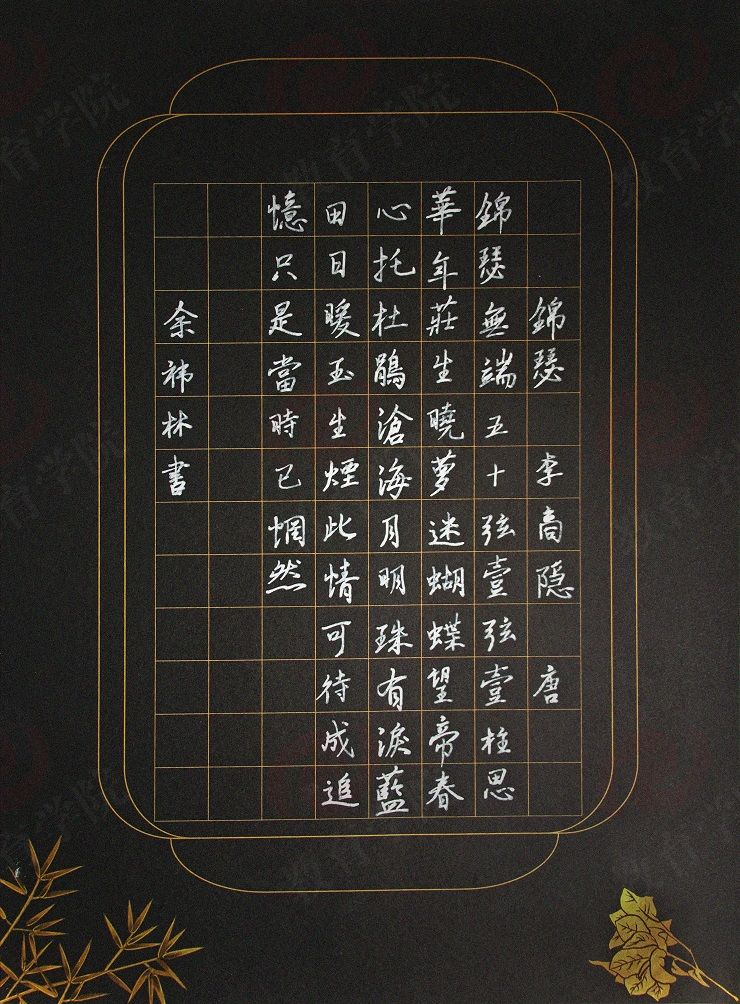 錦瑟 李商隐 唐
錦瑟無端五十弦壹弦壹柱思
華年莊生曉夢迷蝴蝶望帝春
心托杜鵑滄海月明珠有淚藍
田日暖玉生煙此情可待成追
憶只是當時已惘然
余祎林書
教育学院